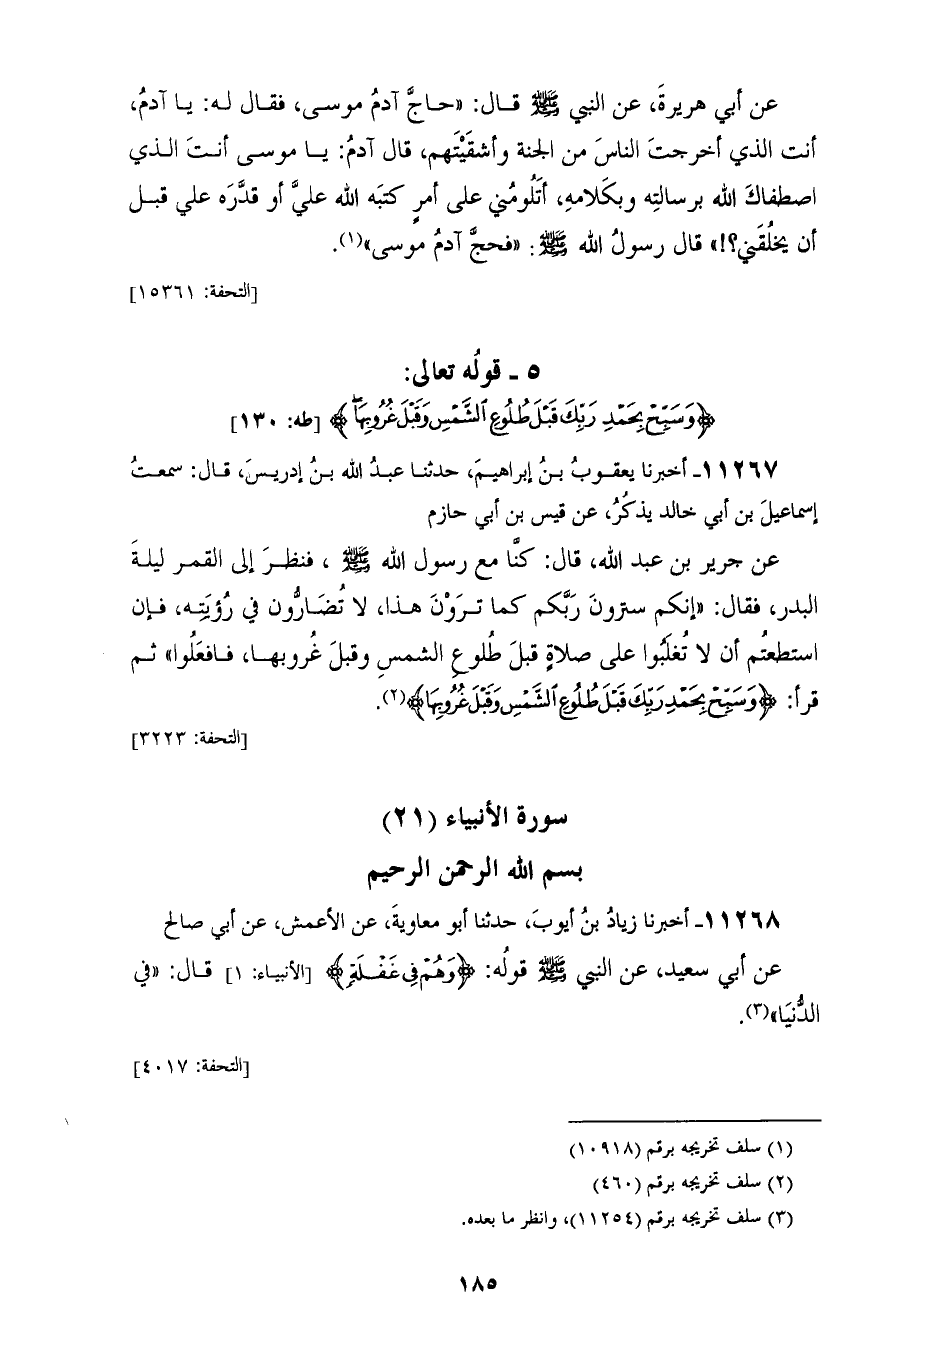 عن أبي هريرةَ، عن النبي ﷺ قـال: «حـاجَّ آدمُ موسـى، فقـال لـه: يـا آدمُ،
أنت الذي أخرجتَ الناسَ من الجنة وأشقَيْتَهم، قال آدمُ: يـا موسـى أنـتَ الـذي
اصطفاكَ الله برسالتِه وبكَلامهِ، أتَلُومُني على أمرٍ كتبَه الله عليَّ أو قدَّرَه علي قبـل
أن يخلُقَني؟!» قال رسولُ الله ﷺ: «فحجَّ آدمُ موسى»(١).
[التحفة: ١٥٣٦١]
٥ ـ قولُه تعالى:
﴿وَسَبِّحْ بِحَمْدِ رَبِّكَ قَبْلَ طُلُوعِ ٱلشَّمْسِ وَقَبْلَ غُرُوبِهَا ۖ﴾ [طه: ١٣٠]
١١٢٦٧ـ أخبرنا يعقـوبُ بـنُ إبراهيـمَ، حدثنـا عبـدُ الله بـنُ إدريـسَ، قـال: سمعـتُ
إسماعيلَ بن أبي خالد يذكُرُ، عن قيس بن أبي حازم
عن جرير بن عبد الله، قال: كنَّا مع رسول الله ﷺ ، فنظـرَ إلى القمـر ليلـةَ
البدر، فقال: «إنكم سترونَ رَبَّكم كما تـرَوْنَ هـذا، لا تُضَـارُّون في رُؤيَتِـه، فـإن
استطعتُم أن لا تُغلَبُوا على صلاةٍ قبلَ طُلوعِ الشمسِ وقبلَ غُروبهـا، فـافعَلُوا» ثـم
قرأ: ﴿وَسَبِّحْ بِحَمْدِ رَبِّكَ قَبْلَ طُلُوعِ ٱلشَّمْسِ وَقَبْلَ غُرُوبِهَا﴾(٢).
[التحفة: ٣٢٢٣]
سورة الأنبياء (٢١)
بسم الله الرحمن الرحيم
١١٢٦٨ـ أخبرنا زيادُ بنُ أيوبَ، حدثنا أبو معاويةَ، عن الأعمش، عن أبي صالح
عن أبي سعيد، عن النبي ﷺ قولُه: ﴿وَهُمْ فِي غَفْلَةٍ﴾ [الأنبياء: ١] قـال: «في
الدُّنيَا»(٣).
[التحفة: ٤٠١٧]
(١) سلف تخريجه برقم (١٠٩١٨)
(٢) سلف تخريجه برقم (٤٦٠)
(٣) سلف تخريجه برقم (١١٢٥٤)، وانظر ما بعده.
١٨٥